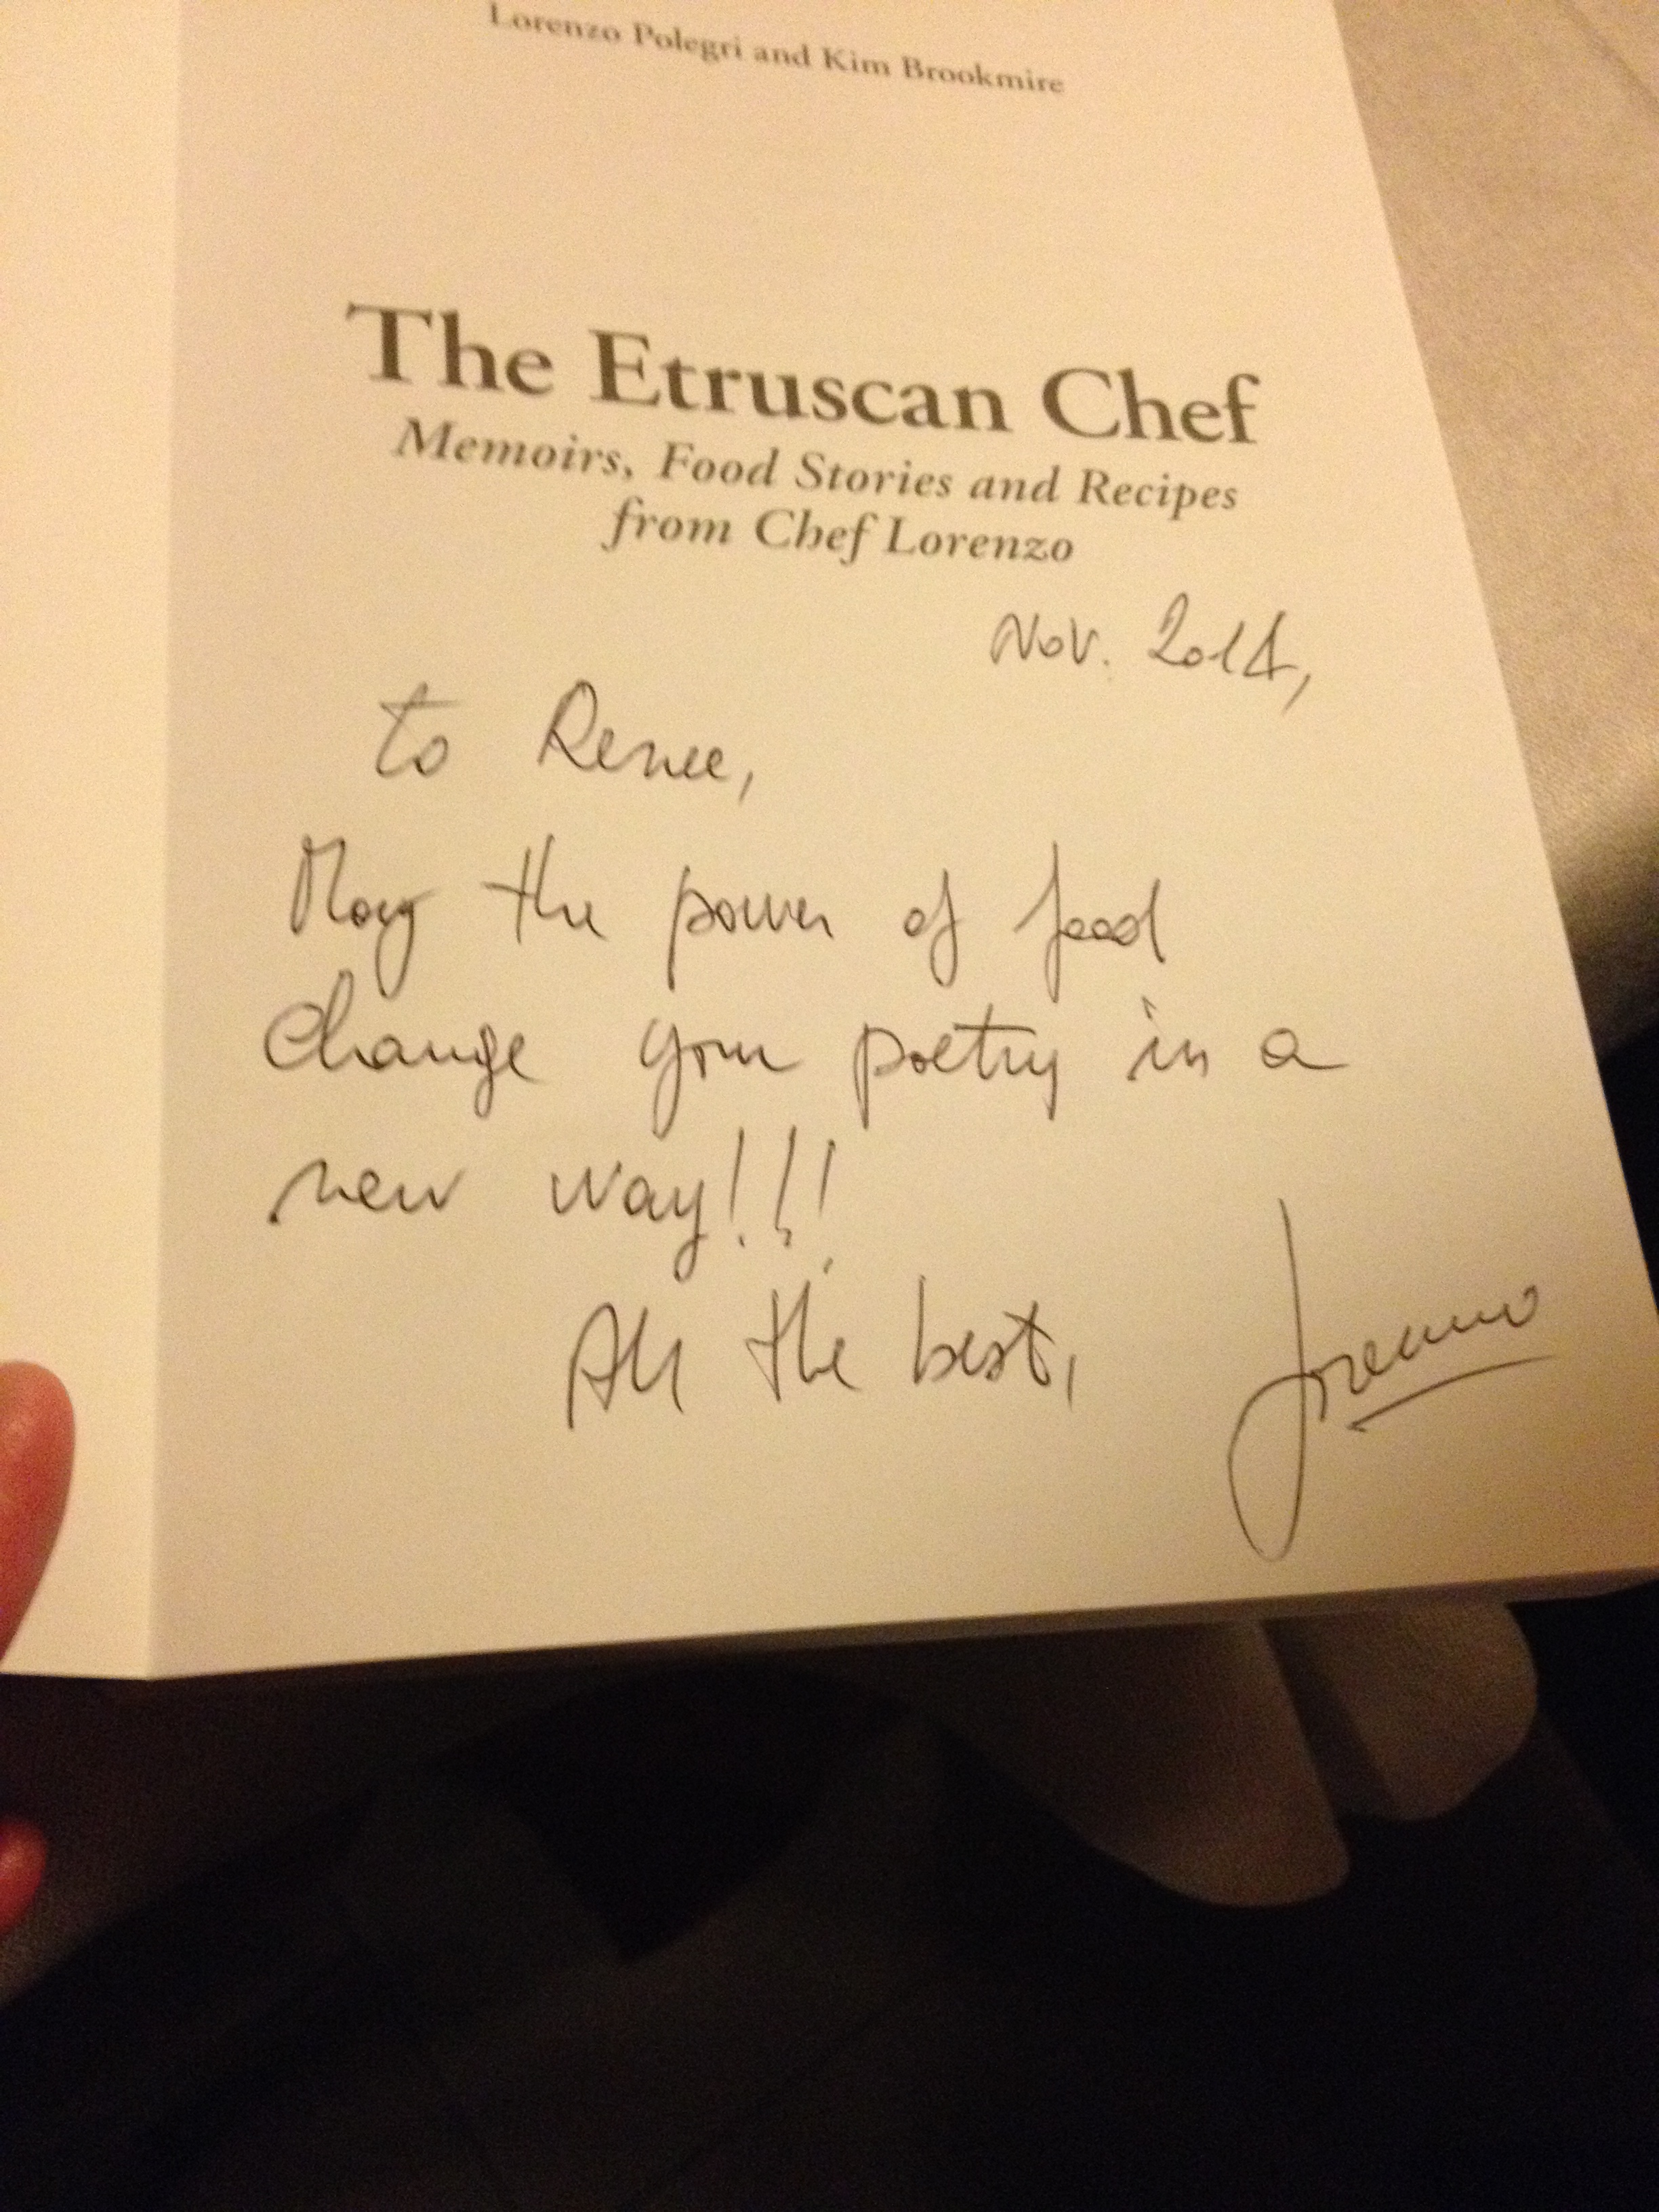 Lorenzo Polegri and Kim Brookmire
The Etruscan Chef
Memoirs, Food Stories and Recipes
from Chef Lorenzo
Nov. 2014,
to Renee,
May the power of food
change your poetry in a
new way!!!
All the best,
Lorenzo